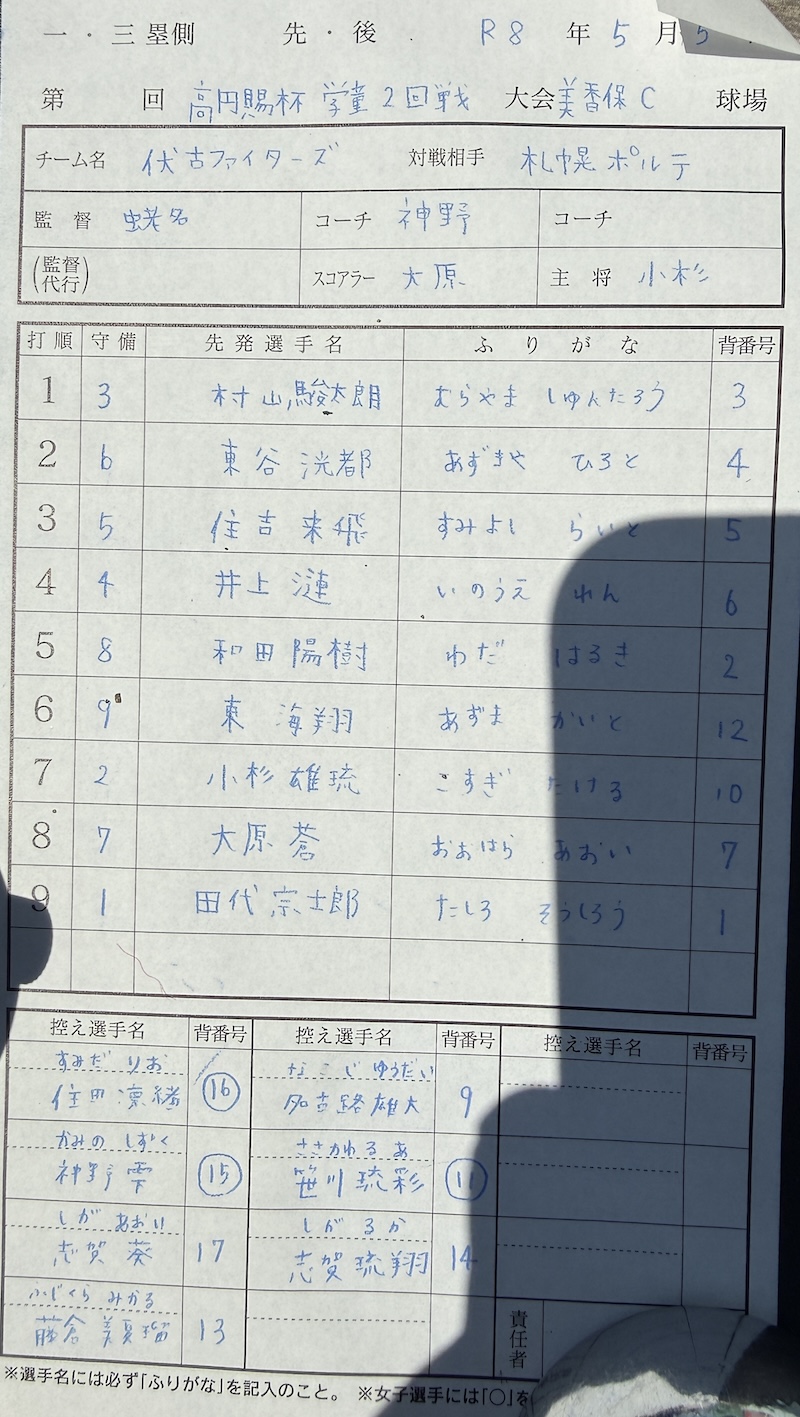 一・三塁側 先・後 R8年5月5
第 回 高円賜杯 学童 2回戦 大会 美香保C 球場
チーム名 伏古ファイターズ 対戦相手 札幌ポルテ
監督 蛯名 コーチ 神野 コーチ
(監督代行) スコアラー 大原 主将 小杉
打順 守備 先発選手名 ふりがな 背番号
1 3 村山駿太朗 むらやま しゅんたろう 3
2 6 東谷洸都 あずまや ひろと 4
3 5 住吉来飛 すみよし らいと 5
4 4 井上漣 いのうえ れん 6
5 8 和田陽樹 わだ はるき 2
6 9 東海翔 あずま かいと 12
7 2 小杉雄琉 こすぎ たける 10
8 7 大原蒼 おおはら あおい 7
9 1 田代宗士郎 たしろ そうしろう 1
控え選手名 背番号 控え選手名 背番号 控え選手名 背番号
すみだ りお なこじ ゆうだい
住田凛緒 16 名古路雄大 9
かみの しずく ささかわ るあ
神野雫 15 笹川琉彩 11
しが あおい しが るか
志賀葵 17 志賀琉翔 14
ふじくら みかる
藤倉 13
責任者
※選手名には必ず「ふりがな」を記入のこと。 ※女子選手には「○」を